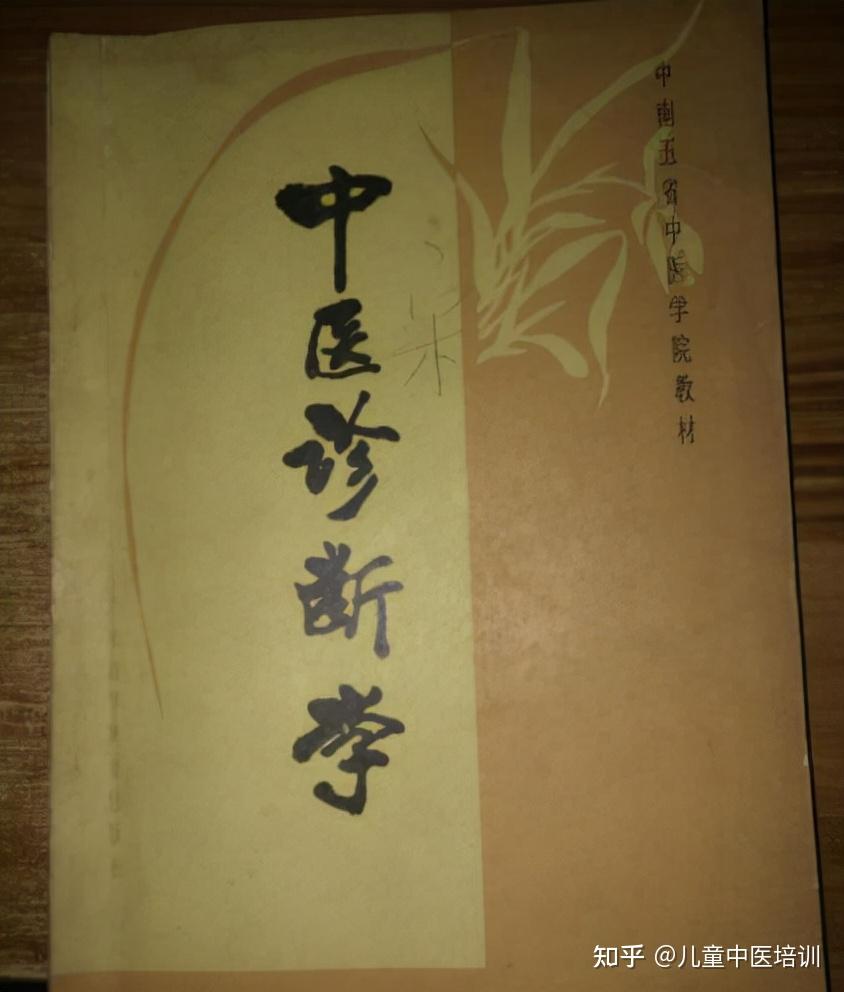 中南五省中医学院教材
中医诊断学
知乎 @儿童中医培训